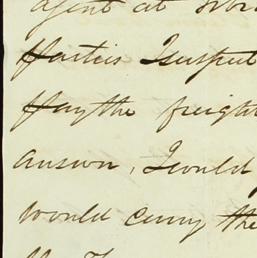 agent at
Parties I suspect
Pay the freight
answer, I would
would carry the